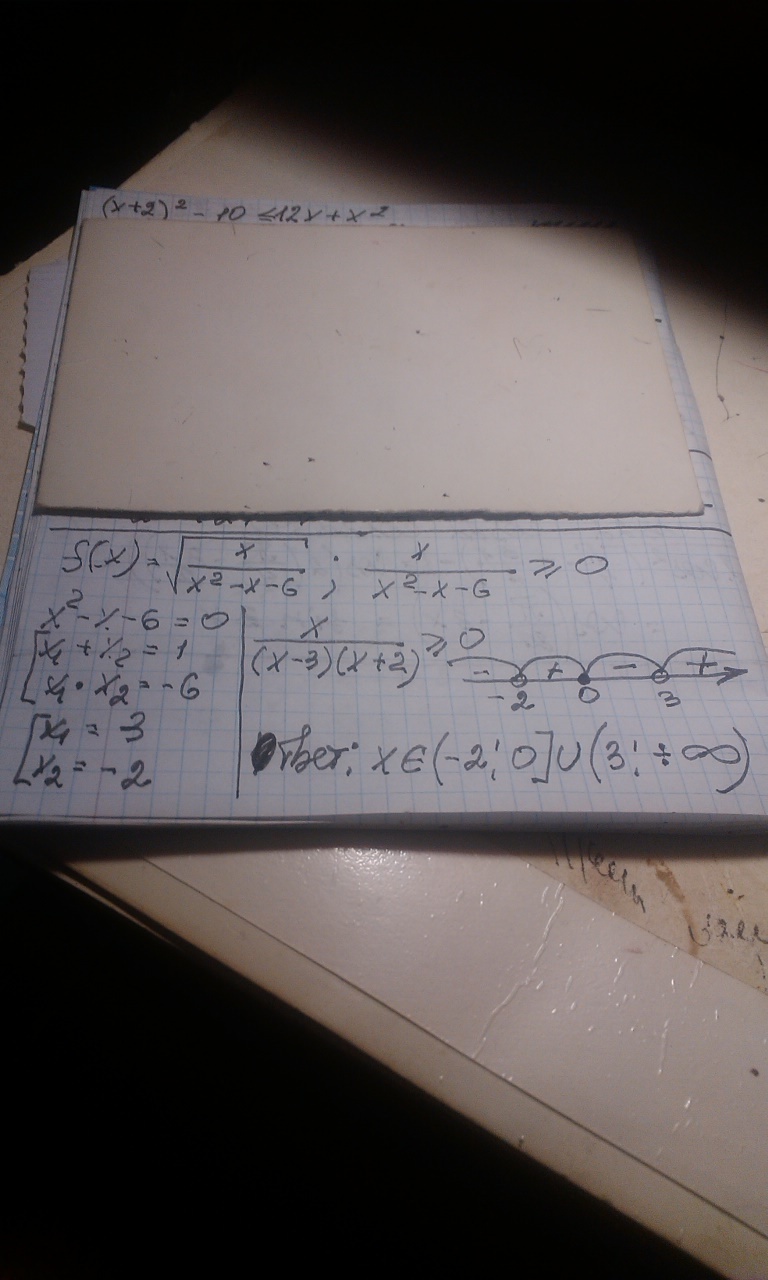 (x+2)² - 10 ≤ 12x + x²
f(x) = √(x/(x²-x-6)) ; x/(x²-x-6) ≥ 0
x² - x - 6 = 0
[x₁ + x₂ = 1
x₁ · x₂ = -6
[x₁ = 3
x₂ = -2
x/((x-3)(x+2)) ≥ 0
- + - +
-2 0 3
Ответ: x∈(-2; 0]∪(3; +∞)